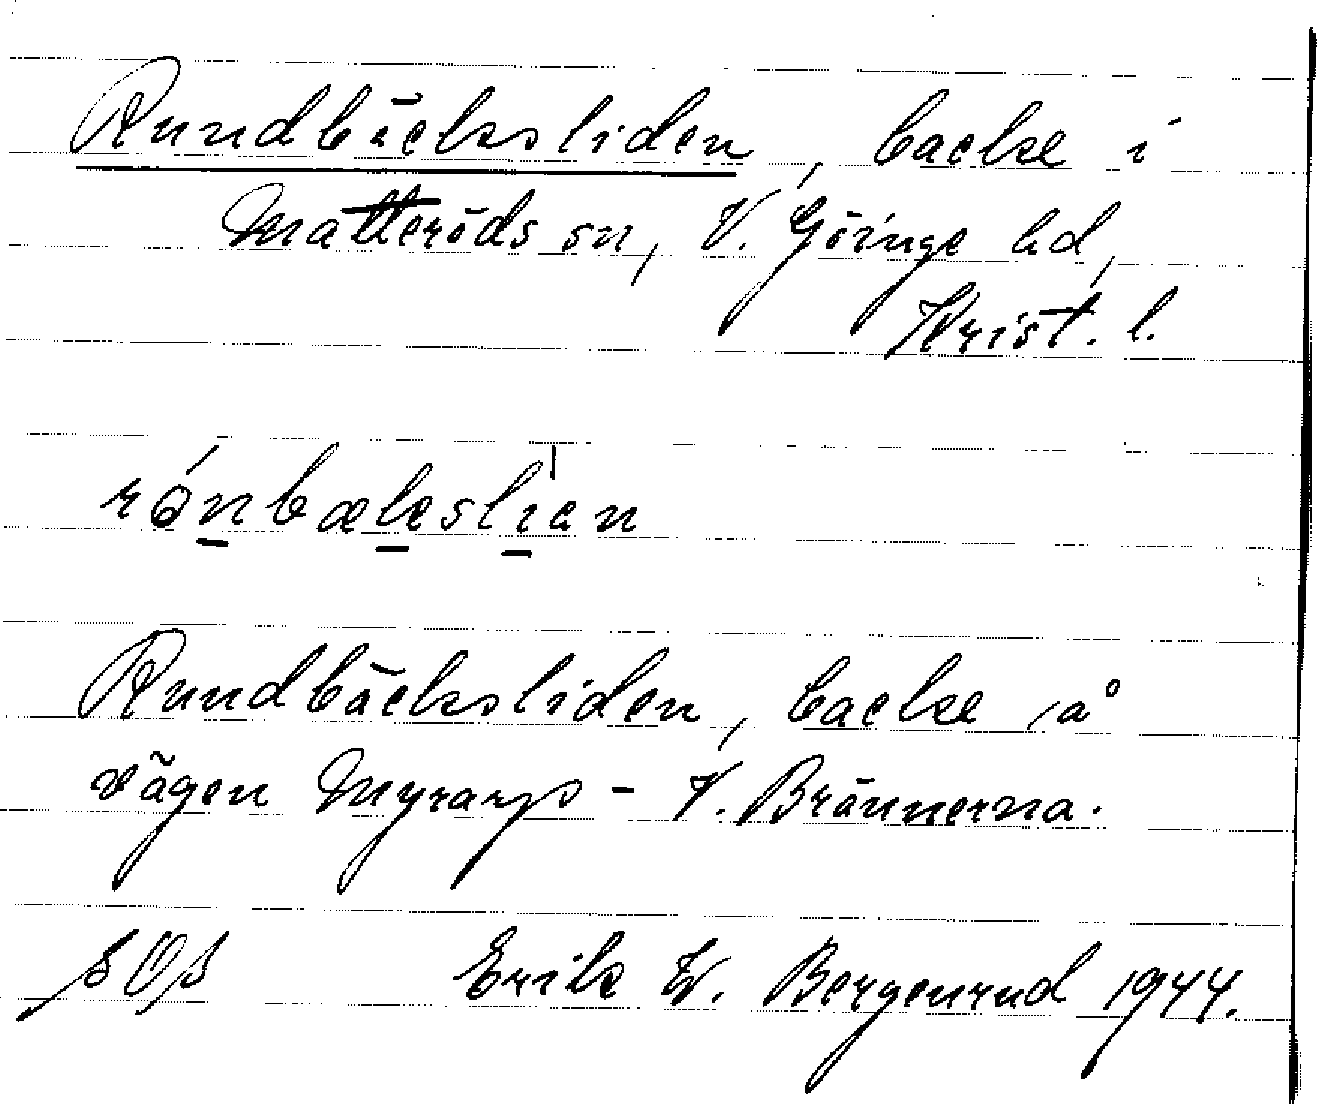 Rundbäcksliden, backe i
Matteröds sn, V. Göinge hd,
Krist. l.
rónbækslien
Rundbäcksliden, backe å
vägen Myrarp - V. Brännerna.
SOS Erik W. Bergenrud 1944.